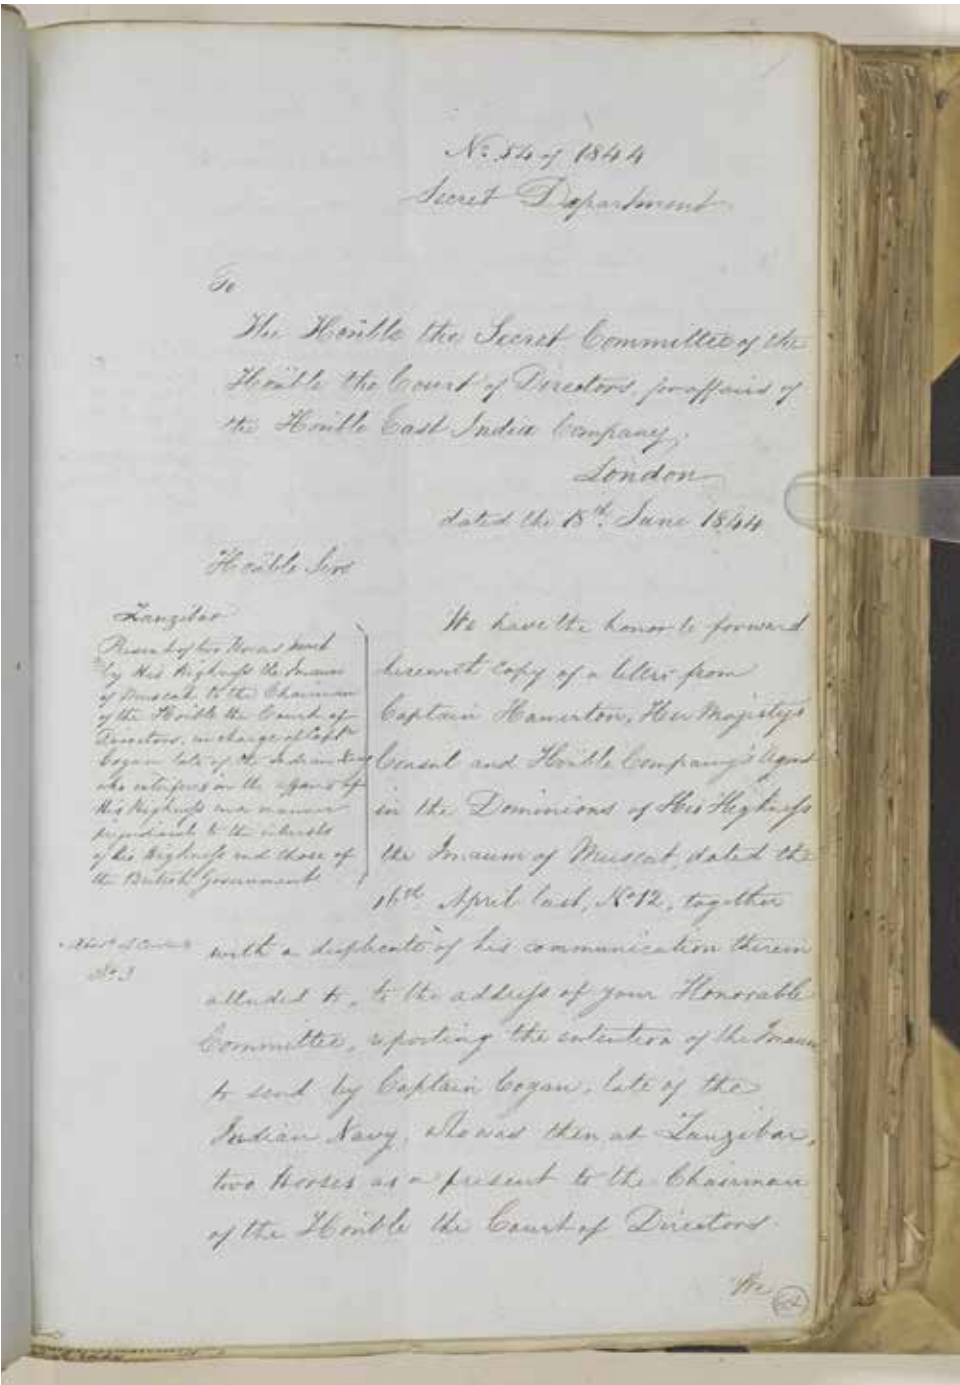 No. 54 of 1844
Secret Department
To
The Honble the Secret Committee of the
Honble the Court of Directors, for affairs of
the Honble East India Company,
London
dated the 18th. June 1844
Honble Sirs
Zanzibar
Present of two Horses sent
by His Highness the Imaum
of Muscat to the Chairman
of the Honble the Court of
Directors, in charge of Captn
Cogan late of the Indian Navy
who interferes in the affairs of
His Highness in a manner
prejudicial to the interests
of his Highness and those of
the British Government
We have the honor to forward
herewith copy of a letter from
Captain Hamerton, Her Majesty's
Consul and Honble Company's Agent
in the Dominions of His Highness
the Imaum of Muscat, dated the
16th. April last, No 12, together
with a duplicate of his communication therein
alluded to, to the address of your Honorable
Committee, reporting the intention of the Imaum
to send by Captain Cogan, late of the
Indian Navy, who was then at Zanzibar,
two Horses as a present to the Chairman
of the Honble the Court of Directors.
No 3
We